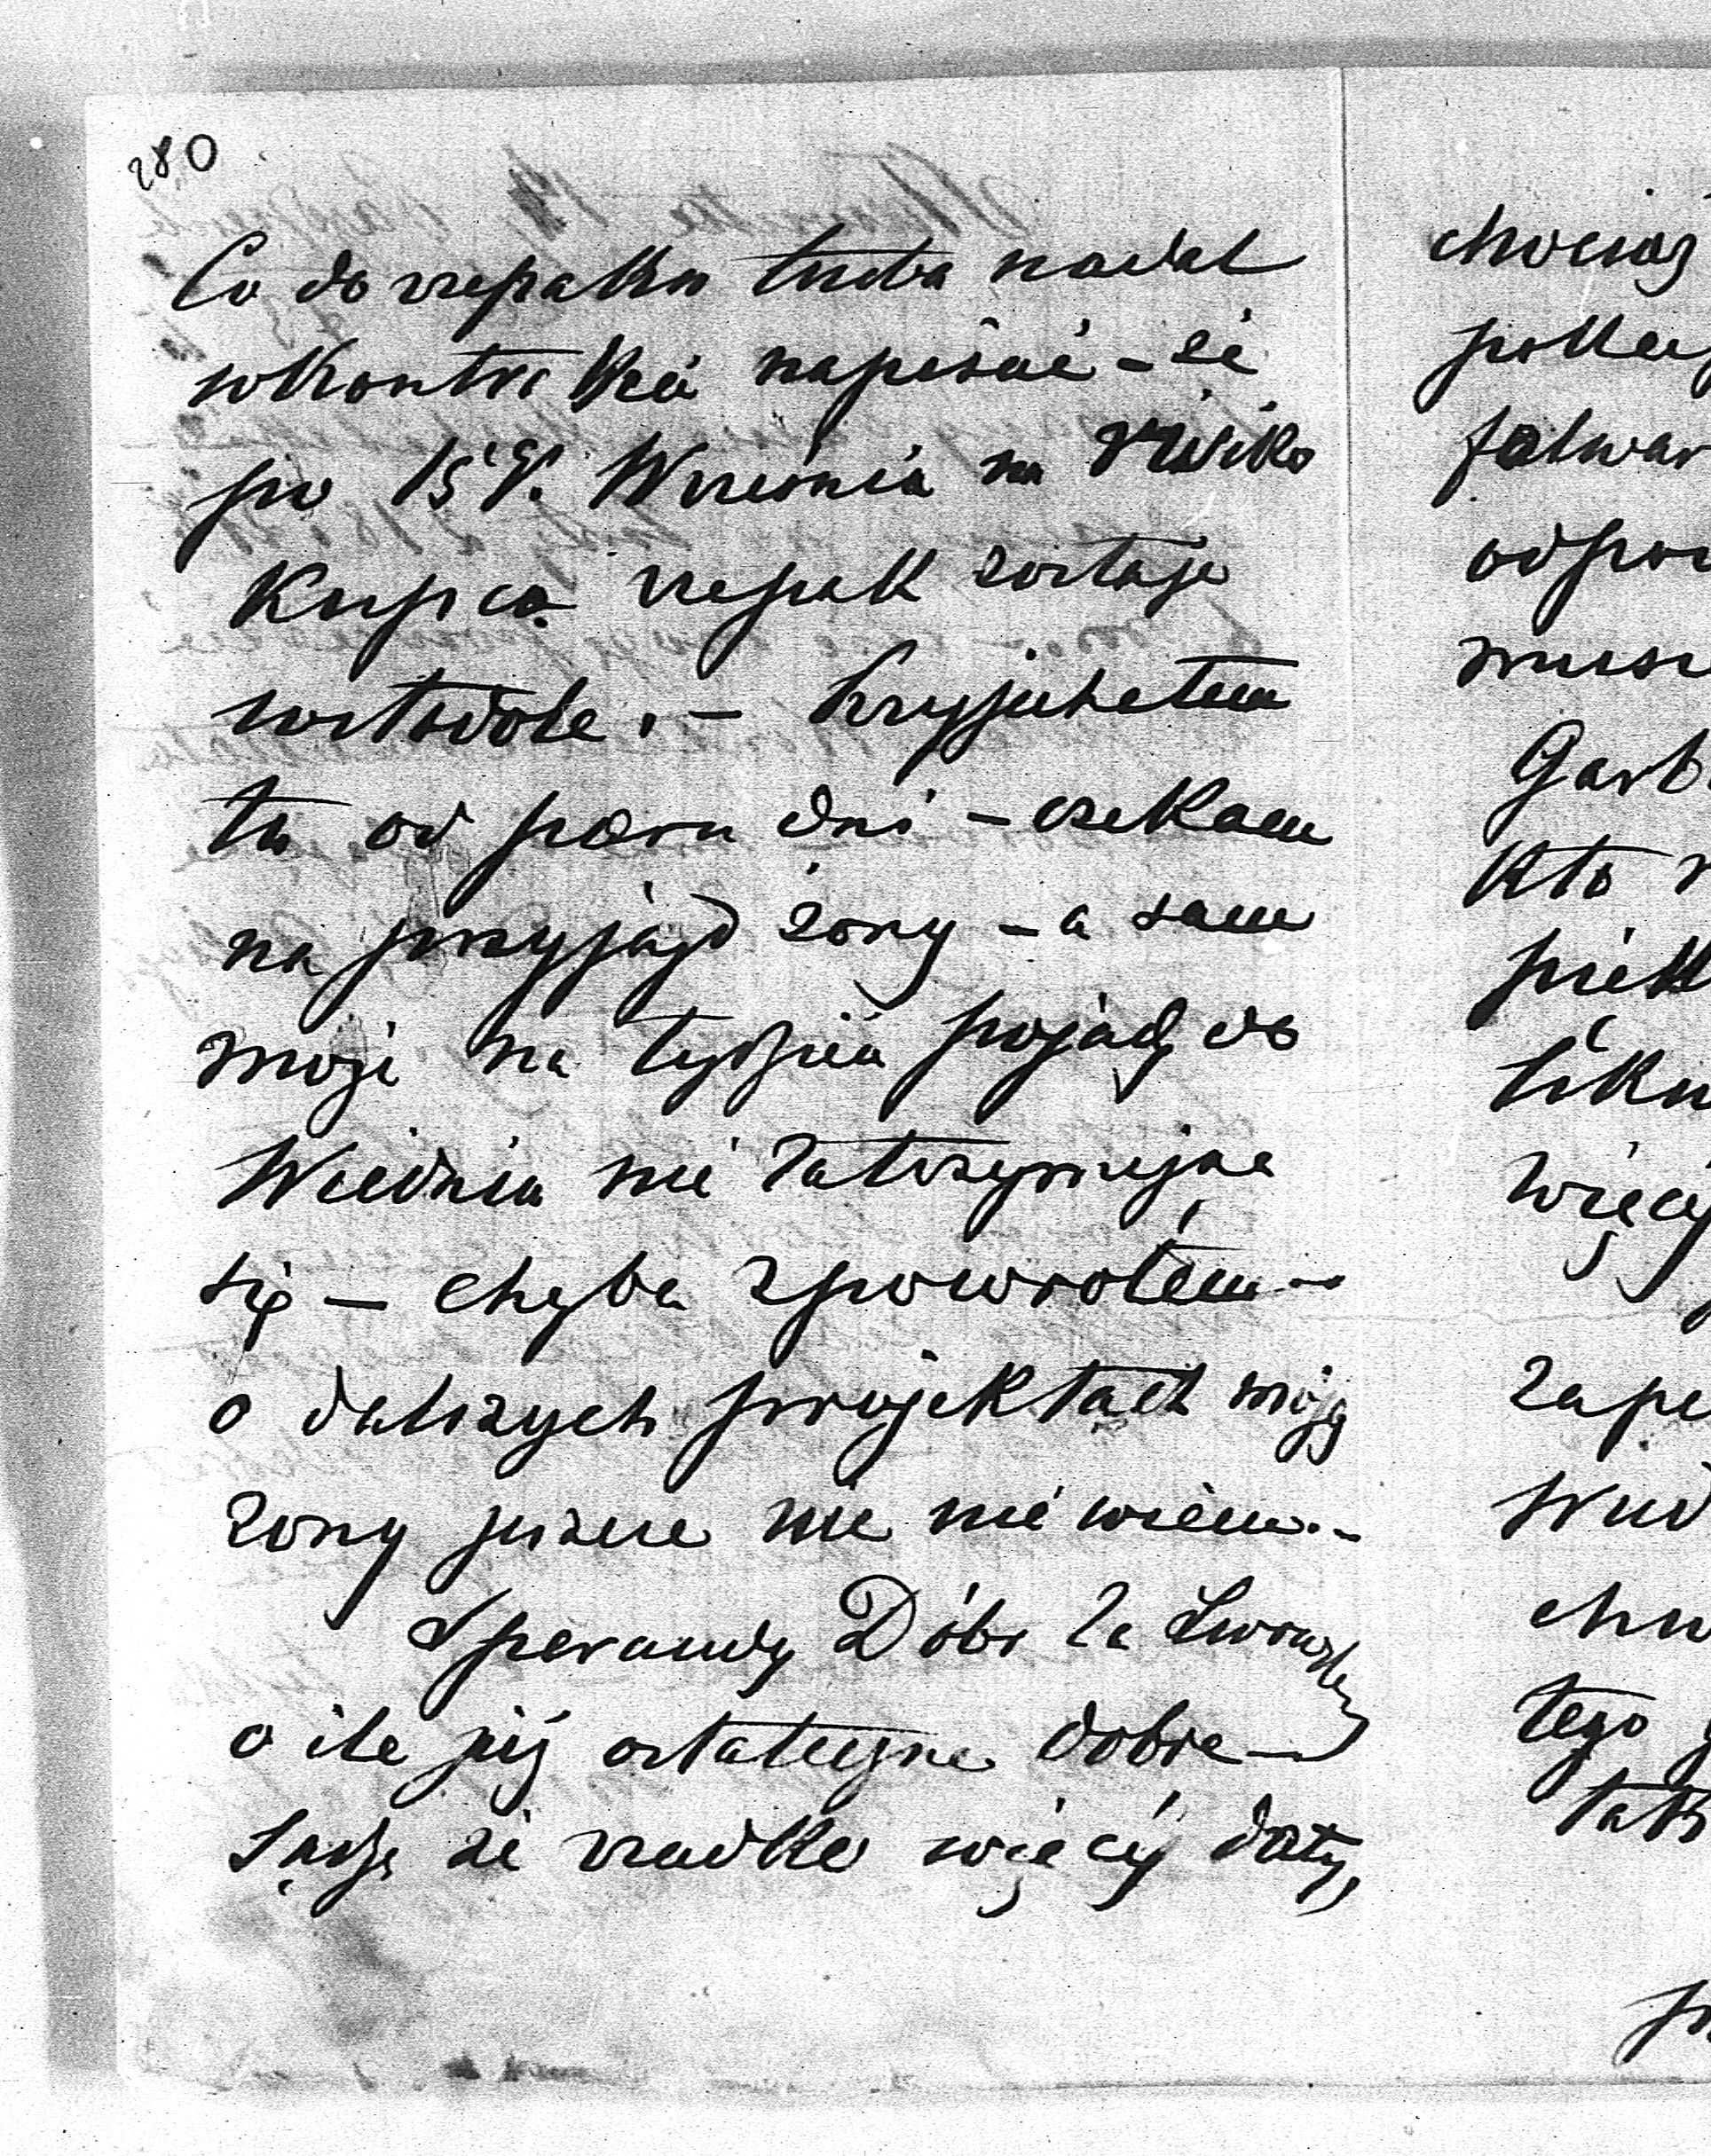 280
Co do rzepaku trzeba nadal
w kontrakcie napisać – że
po 15g. Września na risiko
Kupca rzepak zostaje
w stodole. – Przyjechałem
tu od paru dni – czekam
na przyjazd żony – a sam
może na tydzień pojadę do
Wiednia nie zatrzymując
się – chyba z powrotem –
o dalszych projektach mojej
żony jeszcze nic nie wiem. –
Sperandy Dóbr za
o ile już ostateczne dobre –
Sądzę że rzadko więcej
chociaż
folwar
odpow
musi
Garb
Kto
więcej
zape
tego